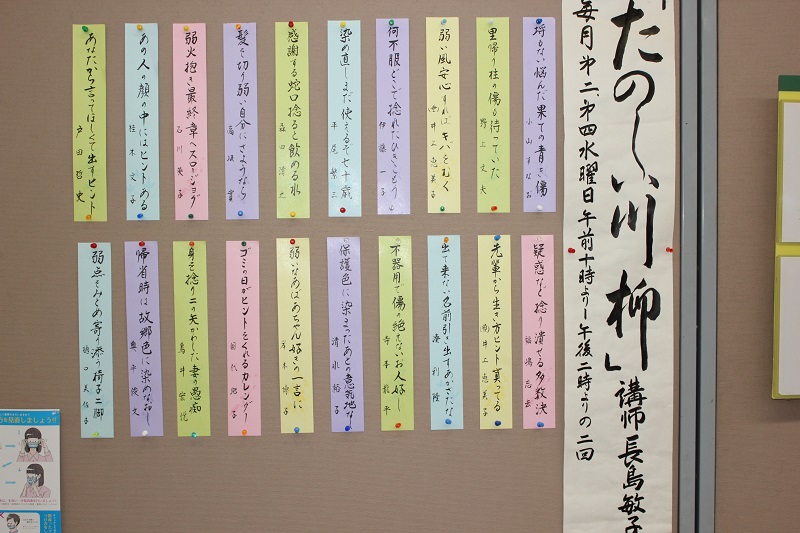 「たのしい川柳」講師 長島敏子
毎月第二、第四水曜日 午前十時より〜午後二時よりの二回
得もない悩んだ果ての青き傷
小山すなお
里帰り柱の傷も待っていた
野上文夫
弱い風安心すればキバをむく
井上恵美子
何不服どこまで捻れたひきこもり
伊藤一子
染め直しまだ使えるぞ七十歳
平尾繁三
感謝する蛇口捻ると飲める水
森田清之
髪を切り弱い自分にさようなら
弱火抱き最終章へスロージョグ
石川英子
あの人の顔の中にはヒントある
桂木文子
あなたから言ってほしくて出すヒント
戸田哲史
疑惑など捻り潰せる多数決
福嶋
先輩から生き方ヒント貰ってる
井上恵美子
出て来ない名前引き出すあかさたな
湊利隆
不器用で傷の絶えないお人好し
寺本龍平
保護色に染まったあとの意気地なし
清水裕子
弱いなあばあちゃん好きの一言に
ゴミの日がヒントをくれるカレンダー
身を捻り二の矢かわした妻の愚痴
鳥井宏悦
帰省時は故郷色に染めなおし
奥平俊文
弱点をみとめ寄り添う椅子二脚